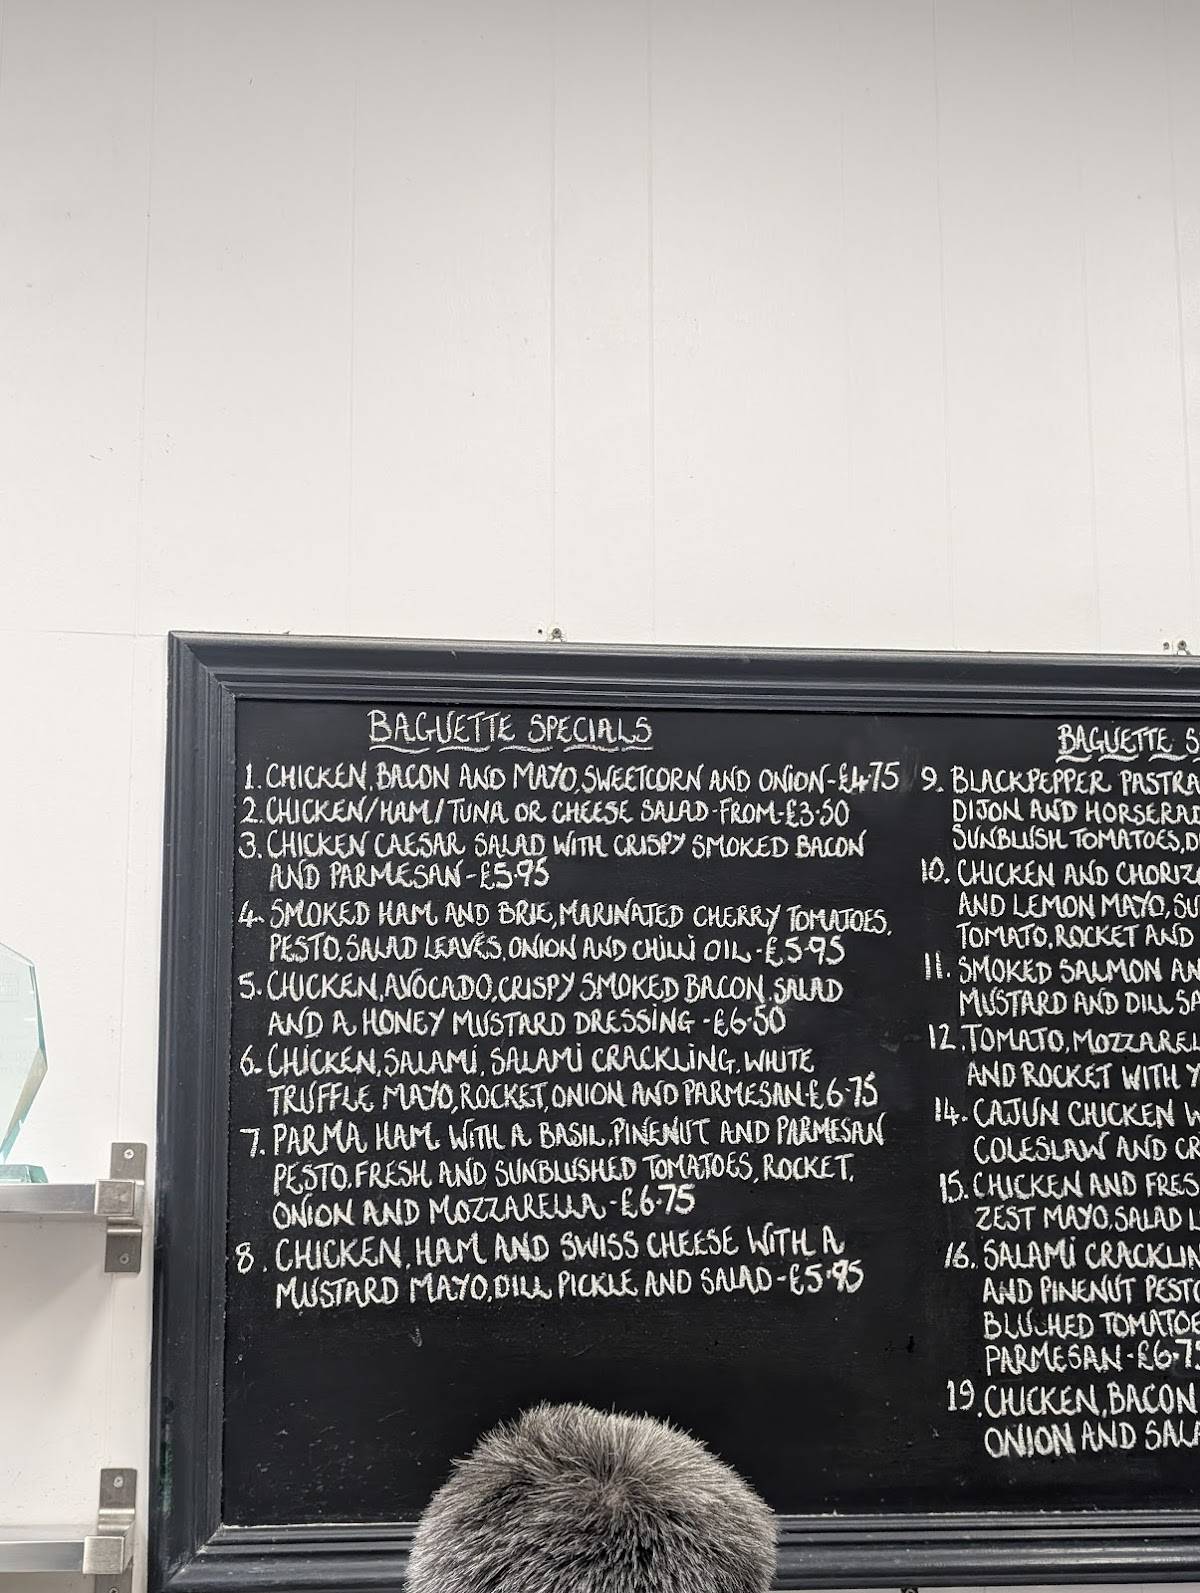 BAGUETTE SPECIALS
1. CHICKEN, BACON AND MAYO, SWEETCORN AND ONION - £4.75
2. CHICKEN/HAM/TUNA OR CHEESE SALAD - FROM - £3.50
3. CHICKEN CAESAR SALAD WITH CRISPY SMOKED BACON
AND PARMESAN - £5.95
4. SMOKED HAM AND BRIE, MARINATED CHERRY TOMATOES,
PESTO, SALAD LEAVES, ONION AND CHILLI OIL - £5.95
5. CHICKEN, AVOCADO, CRISPY SMOKED BACON, SALAD
AND A HONEY MUSTARD DRESSING - £6.50
6. CHICKEN, SALAMI, SALAMI CRACKLING, WHITE
TRUFFLE MAYO, ROCKET, ONION AND PARMESAN - £6.75
7. PARMA HAM WITH A BASIL, PINENUT AND PARMESAN
PESTO, FRESH AND SUNBLUSHED TOMATOES, ROCKET,
ONION AND MOZZARELLA - £6.75
8. CHICKEN, HAM AND SWISS CHEESE WITH A
MUSTARD MAYO, DILL PICKLE AND SALAD - £5.95
BAGUETTE
9. BLACKPEPPER
DIJON AND
SUNBLUSH TOMATOES,
10. CHICKEN AND
AND LEMON MAYO,
TOMATO, ROCKET AND
11. SMOKED SALMON
MUSTARD AND DILL
12. TOMATO,
AND ROCKET WITH
14. CAJUN CHICKEN
COLESLAW AND
15. CHICKEN AND
ZEST MAYO, SALAD
16. SALAMI
AND PINENUT
BLUSHED
PARMESAN - £6.75
19. CHICKEN, BACON
ONION AND